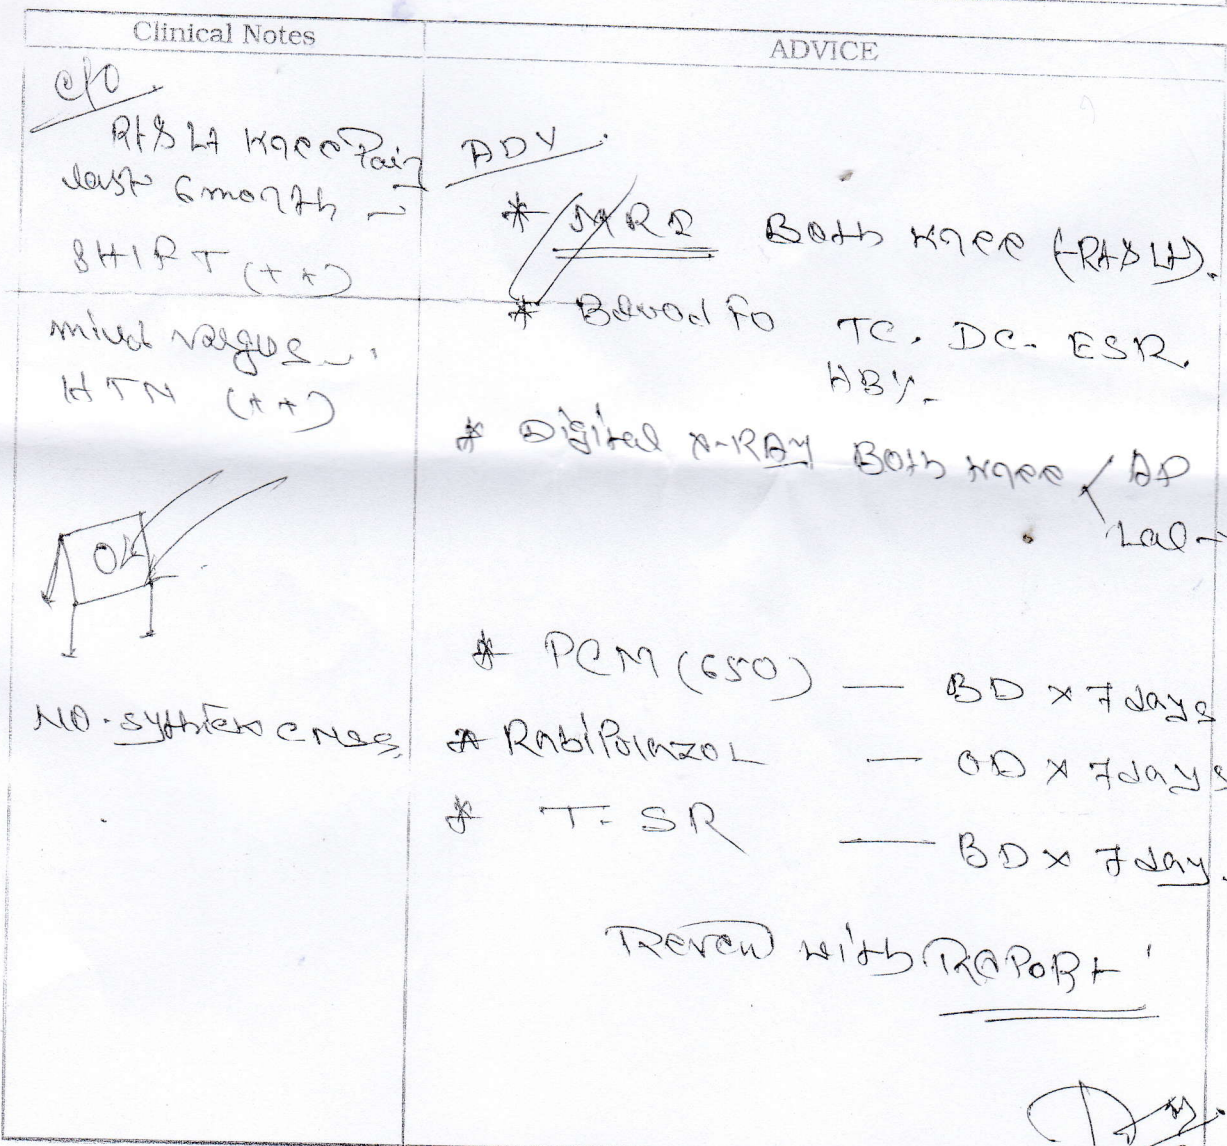 Clinical Notes
ADVICE
C/O
Rt & Lt Knee Pain
last 6 month -
SHIFT (++)
mild valgus
HTN (++)
NO.
ADV.
* MRI Both Knee (Rt & Lt).
* Blood Fo TC. DC. ESR.
HB%.
* Digital X-RAY Both Knee < AP
Lal-
* PCM (650) — BD x 7 days
* RabiPrazoL — OD x 7 days
* T. SR — BD x 7 day.
Reven with RaPoRt